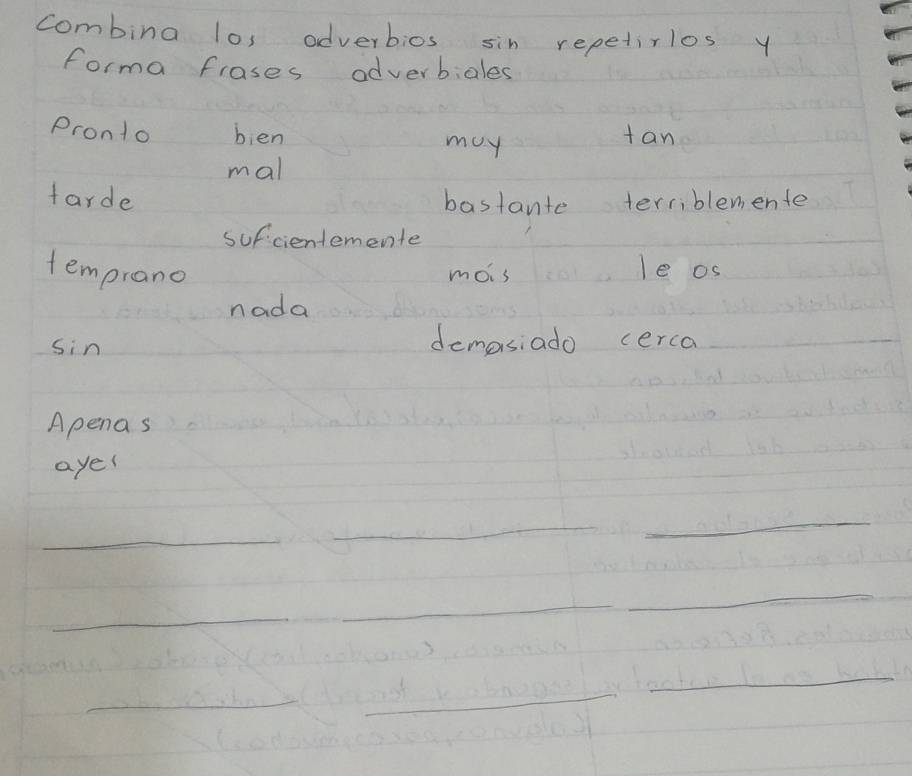 combina los adverbios sin repetirlos y
forma frases adverbiales
Pronto bien muy tan
mal
tarde bastante terriblemente
suficientemente
temprano más le os
nada
sin demasiado cerca
Apenas
ayer